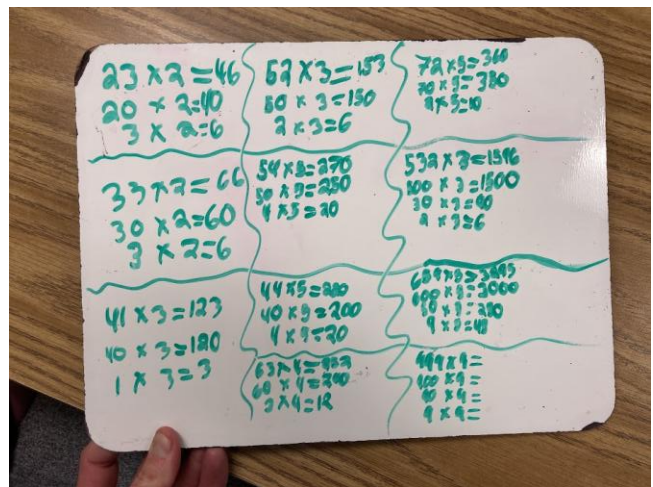 23 × 2 = 46
20 × 2 = 40
3 × 2 = 6
33 × 2 = 66
30 × 2 = 60
3 × 2 = 6
41 × 3 = 123
40 × 3 = 120
1 × 3 = 3
52 × 3 = 153
50 × 3 = 150
2 × 3 = 6
54 × 5 = 270
50 × 5 = 250
4 × 5 = 20
44 × 5 = 220
40 × 5 = 200
4 × 5 = 20
63 × 4 = 252
60 × 4 = 240
3 × 4 = 12
72 × 5 = 360
2 × 5 = 10
532 × 3 = 1596
500 × 3 = 1500
30 × 3 = 90
2 × 3 = 6
499 × 4 =
400 × 4 =
90 × 4 =
9 × 4 =